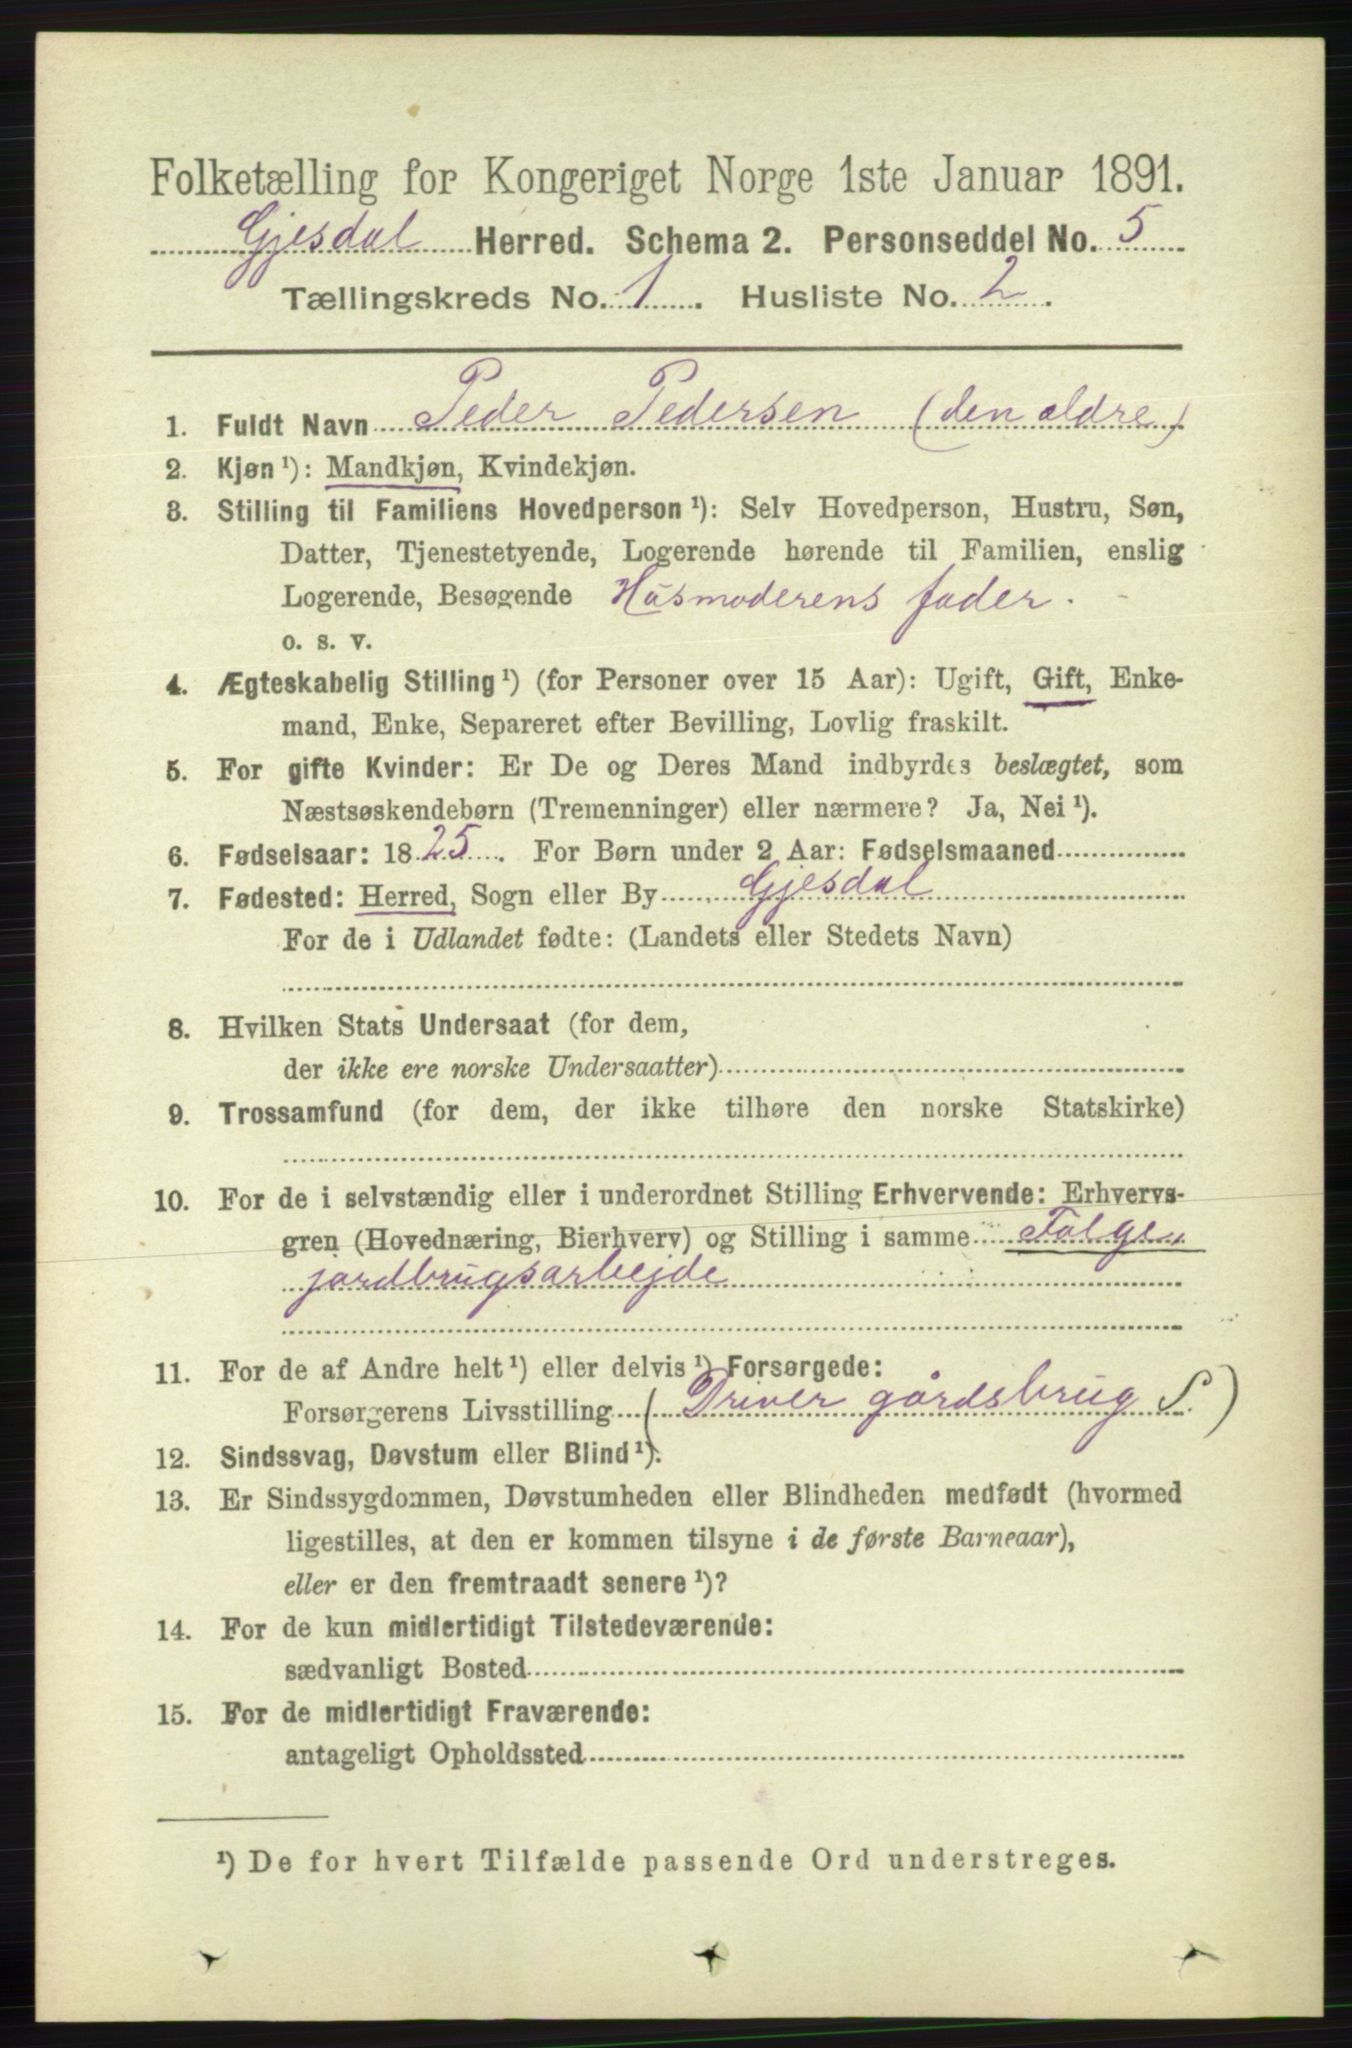 Folketælling for Kongeriget Norge 1ste Januar 1891.
Gjesdal Herred. Schema 2. Personseddel No. 5
Tællingskreds No. 1. Husliste No. 2.
1. Fuldt Navn Peder Pedersen (den ældre)
2. Kjøn ¹): Mandkjøn, Kvindekjøn.
3. Stilling til Familiens Hovedperson ¹): Selv Hovedperson, Hustru, Søn,
Datter, Tjenestetyende, Logerende hørende til Familien, enslig
Logerende, Besøgende Husmoderens fader.
o. s. v.
4. Ægteskabelig Stilling ¹) (for Personer over 15 Aar): Ugift, Gift, Enke-
mand, Enke, Separeret efter Bevilling, Lovlig fraskilt.
5. For gifte Kvinder: Er De og Deres Mand indbyrdes beslægtet, som
Næstsøskendebørn (Tremenninger) eller nærmere? Ja, Nei ¹).
6. Fødselsaar: 1825. For Børn under 2 Aar: Fødselsmaaned
7. Fødested: Herred, Sogn eller By Gjesdal
For de i Udlandet fødte: (Landets eller Stedets Navn)
8. Hvilken Stats Undersaat (for dem,
der ikke ere norske Undersaatter)
9. Trossamfund (for dem, der ikke tilhøre den norske Statskirke)
10. For de i selvstændig eller i underordnet Stilling Erhvervende: Erhvervs-
gren (Hovednæring, Bierhverv) og Stilling i samme
jordbrugsarbejde
11. For de af Andre helt ¹) eller delvis ¹) Forsørgede:
Forsørgerens Livsstilling (Driver gårdsbrug S.)
12. Sindssvag, Døvstum eller Blind ¹).
13. Er Sindssygdommen, Døvstumheden eller Blindheden medfødt (hvormed
ligestilles, at den er kommen tilsyne i de første Barneaar),
eller er den fremtraadt senere ¹)?
14. For de kun midlertidigt Tilstedeværende:
sædvanligt Bosted
15. For de midlertidigt Fraværende:
antageligt Opholdssted
¹) De for hvert Tilfælde passende Ord understreges.